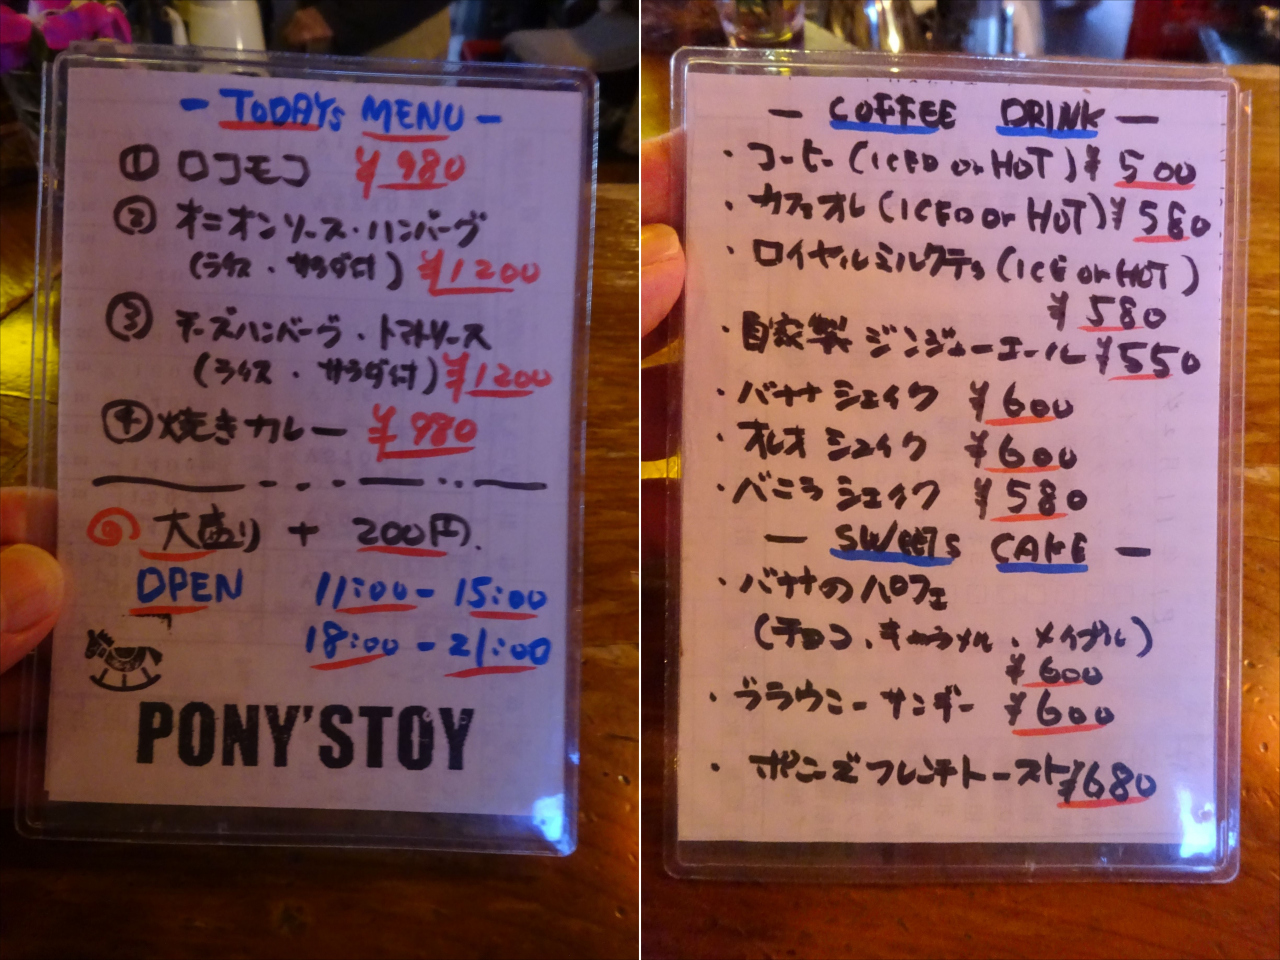 - TODAYs MENU -
① ロコモコ ¥980
② オニオンソース・ハンバーグ
(ライス・サラダ付) ¥1200
③ チーズハンバーグ・トマトソース
(ライス・サラダ付) ¥1200
④ 焼きカレー ¥980
大盛り + 200円.
OPEN 11:00 - 15:00
18:00 - 21:00
PONY'STOY
- COFFEE DRINK -
・コーヒー (ICED or HOT) ¥500
・カフェオレ (ICED or HOT) ¥580
・ロイヤルミルクティ (ICE or HOT)
¥580
・自家製 ジンジャーエール ¥550
・バナナシェイク ¥600
・オレオシェイク ¥600
・バニラシェイク ¥580
- SWEETs CAKE -
・バナナのパフェ
(チョコ・キャラメル・メイプル)
¥600
・ブラウニーサンデー ¥600
・ポニーズフレンチトースト ¥680